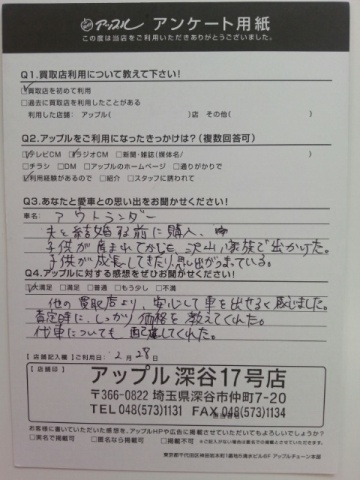 アップル アンケート用紙
この度は当店をご利用いただきありがとうございました。
Q1.買取店利用について教えて下さい!
☑買取店を初めて利用
□過去に買取店を利用したことがある
利用した店舗: アップル( )店 その他( )
Q2.アップルをご利用になったきっかけは?(複数回答可)
☑テレビCM ☑ラジオCM □新聞・雑誌(媒体名/ )
□チラシ □DM □アップルのホームページ □通りがかりで
☑利用経験があるので □紹介 □スタッフに誘われて
Q3.あなたと愛車との思い出をお聞かせください!
車名: アウトランダー
夫と結婚する前に購入、
子供が産まれてからも、沢山、家族で出かけた。
子供が成長してきたり思い出がつまっている。
Q4.アップルに対する感想をぜひお聞かせください!
☑大満足 □満足 □普通 □もう少し □不満
他の買取店より、安心して車を出せると感じました。
査定時に、しっかり価格を教えてくれた。
代車についても配慮してくれた。
【店舗記入欄】ご利用日: 2月28日
【店舗印】
アップル 深谷17号店
〒366-0822 埼玉県深谷市仲町7-20
TEL 048(573)1131 FAX 048(573)1134
お客様に書いていただいた感想を、アップルHPや広告に掲載させていただいてもよろしいでしょうか?
□実名で掲載可 □匿名なら掲載可 □掲載不可